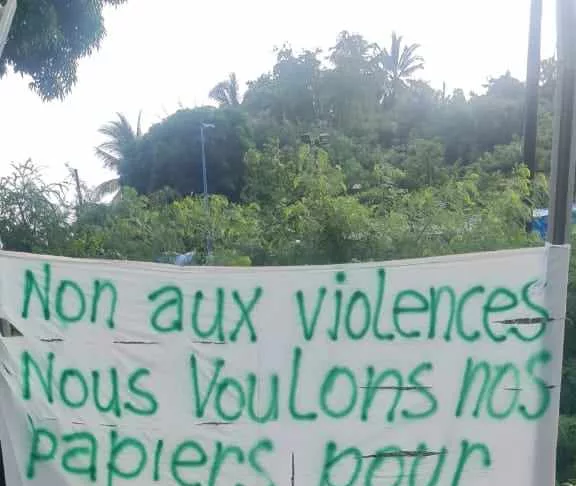 Non aux violences
Nous Voulons nos
papiers pour